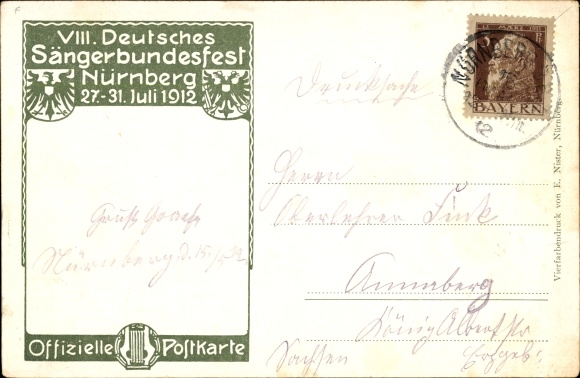 VIII. Deutsches
Sängerbundesfest
Nürnberg
27.-31. Juli 1912
Offizielle Postkarte
Drucksache
NÜRNBERG
12
BAYERN
Herrn
Oberlehrer Fink
Annaberg
König Albertstr
Sachsen Erzgeb.
Nürnberg d.
Vierfarbendruck von E. Nister, Nürnberg.